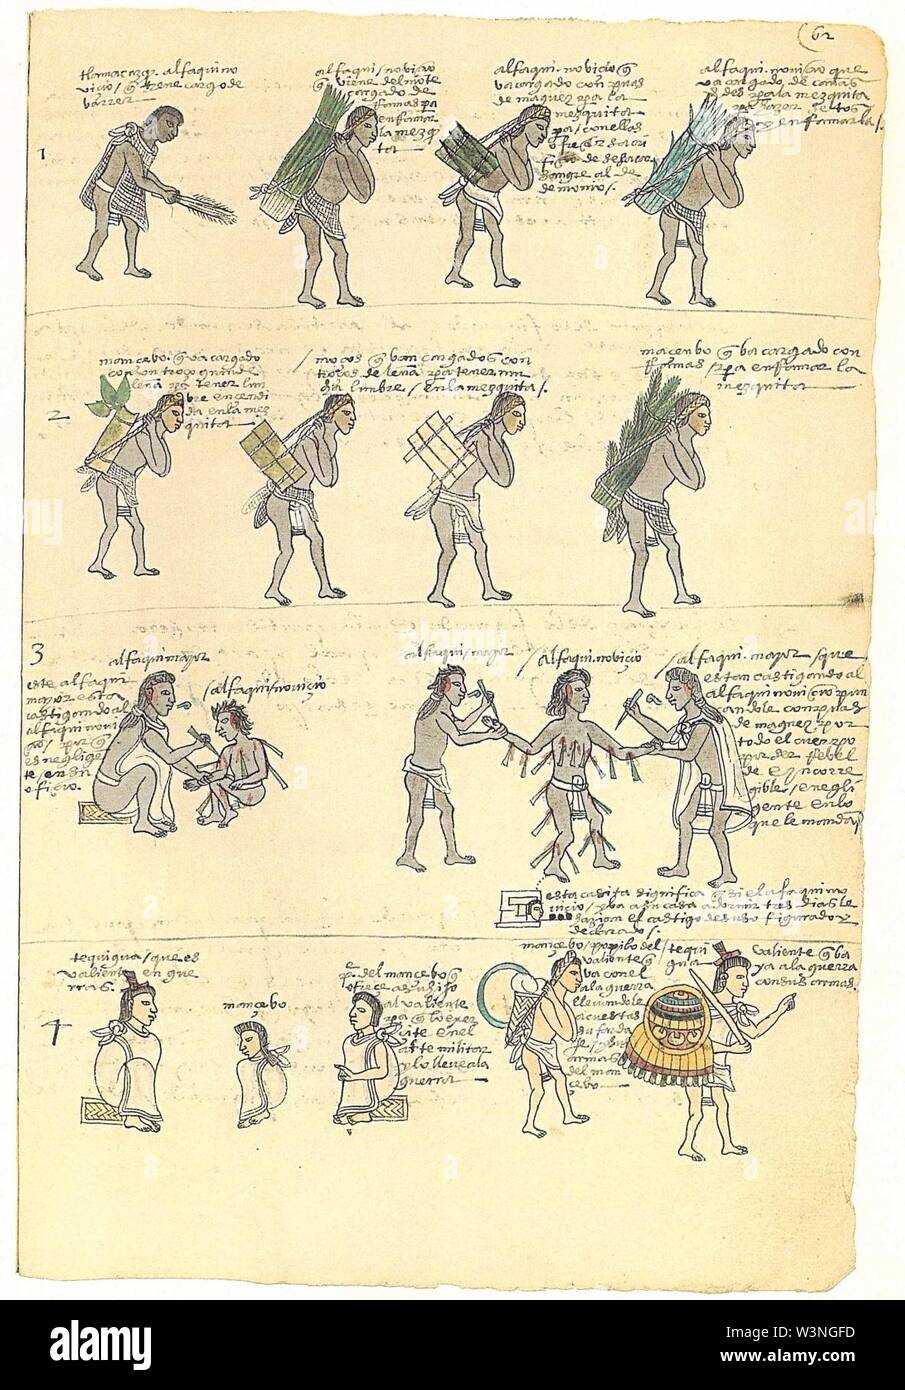 62
tlamacazqȝ. alfaqui no
vicio / q̃ tiene cargo de
barrer
alfaqui / novicio
q̃ viene del mōte
cargado de
Ramas pa
enRamar
la mezq̃
ta
alfaqui. novicio q̃
va cargado con puas
de maguez / pa la
mezquita
pa / con ellas
ofrecer sacri
ficio de
sangre al de
demonio /.
alfaqui. novicio que
va cargado de cañas
verdes pa la mezquita
pa hazer
enRamarla /.
1
mancebo. q̃ va cargado
con un troço grande
leña pa tener lum
bre encendi
da en la mez
quita
/ moços q̃ van cargados con
troços de leña / pa tener en
dida lumbre / en la mezquita /.
macenbo q̃ va cargado con
Ramas / pa enRamar la
mezquita
2
3
alfaqui mayor
este alfaqui
mayor esta
castigando al
alfaqui novi
cio / por q̃
es neglige
te / en su
oficio
/ alfaqui / novicio
alfaqui / mayor
/ alfaqui. novicio
/ alfaqui. mayor / que
estan castigando al
alfaqui novicio / pun
candole con puas
de maguez / por
todo el cuerpo
por ser Rebel
de e yncorre
gible / e negli
gente en lo
que le mandā /
esta casita significa q̃ si el alfaqui no
vicio / yba a su casa a dormir tres dias le
hazian el castigo de suso figurado y
declarado /.
tequigua / que es
valiente en gue
rras
mancebo
4
pe. del mancebo q̃
ofrece a su hijo
al valiente
pa q̃ lo exer
cite en el
arte militar
y lo lleve a la
guerra
mancebo / popilo del
valiente q̃
va con el
a la guerra
llevandole
a cuestas
su farda
je / y sus
armas
del man
cebo
/ tequi
gua
valiente q̃ va
ya a la guerra
con sus armas.
alamy
a
Image ID: W3NGFD
www.alamy.com